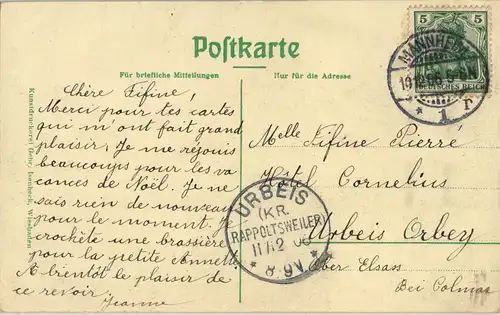 Postkarte
Für briefliche Mitteilungen
Nur für die Adresse
Kunstdruckerei Gebr. Isenbeck, Wiesbaden
Chère Fifine,
Merci pour tes cartes
qui m'ont fait grand
plaisir; Je me réjouis
beaucoup pour les va
cances de Noël. Je ne
sais rien de nouveau
pour le moment, je
crochète une brassière
pour la petite Annette.
A bientôt le plaisir de
ce revoir.
Jeanne
5 5
DEUTSCHES REICH
MANNHEIM
10.12.06
* 1 r
Melle Fifine Pierré
Hôtel Cornelius
Urbeis Orbey
Ober Elsass
Bei Colmar
URBEIS
(KR.
RAPPOLTSWEILER)
11 12 06
* 8-9V *